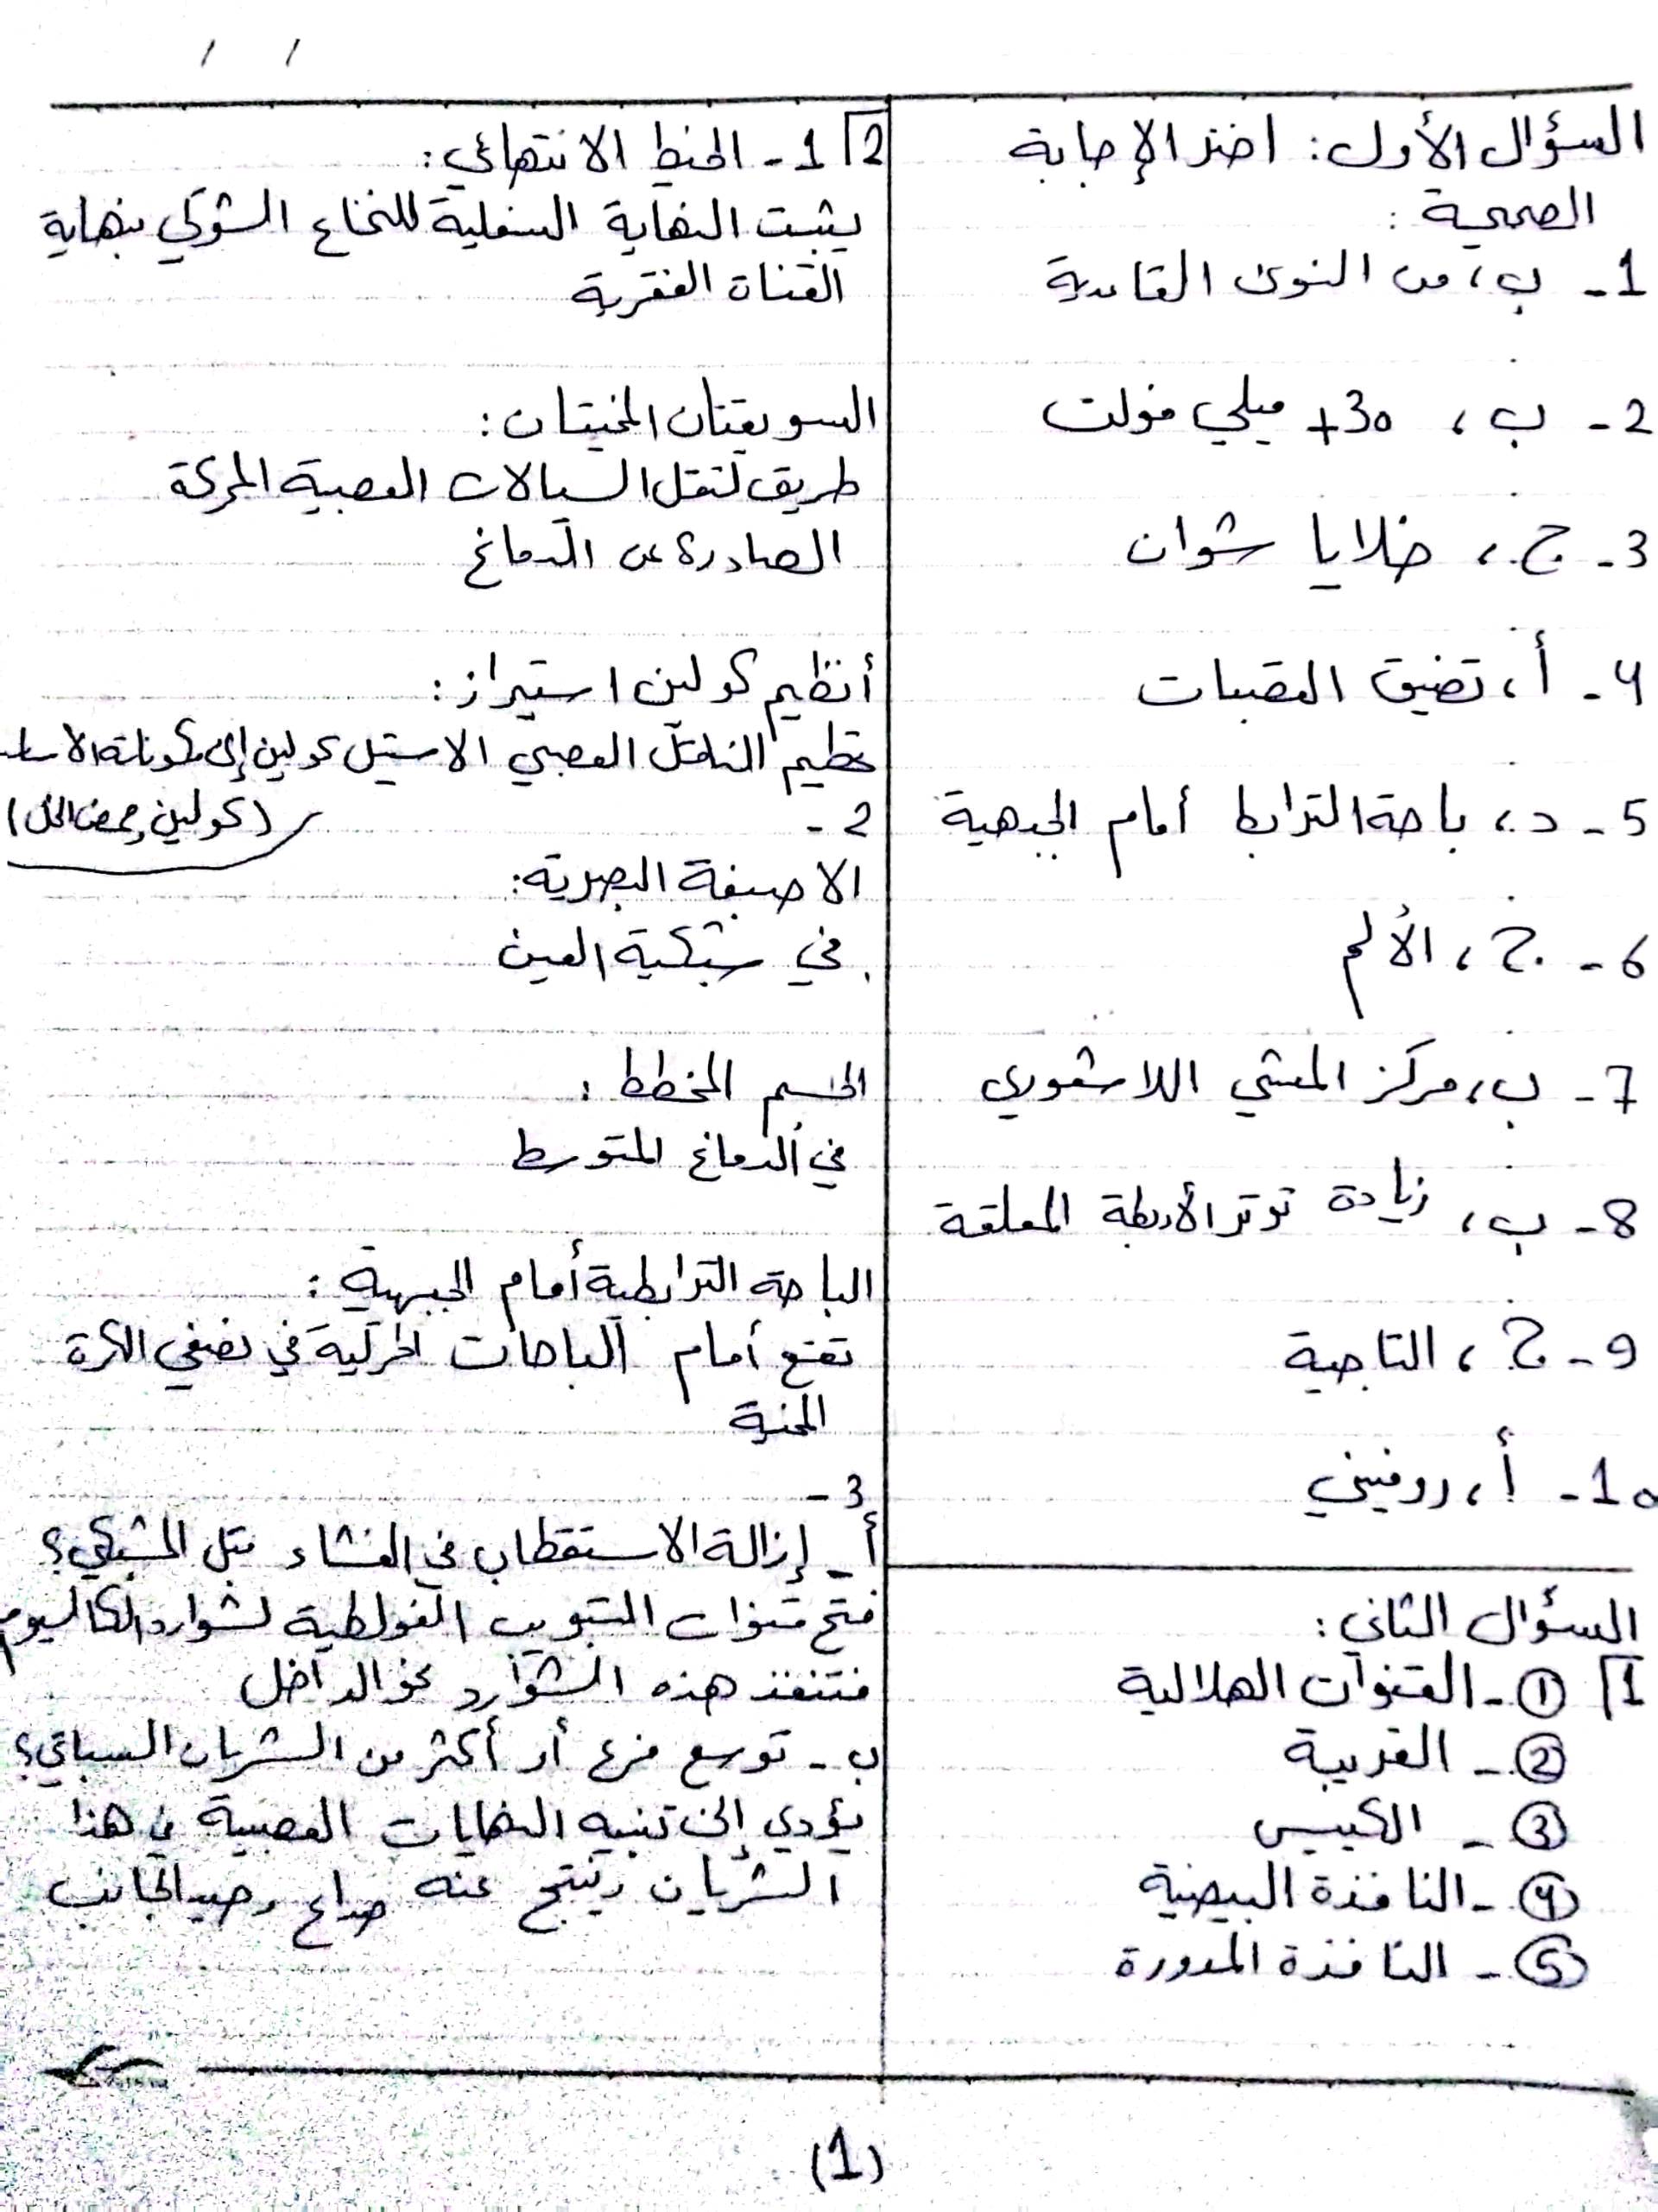 السؤال الأول: اختر الإجابة
الصحيحة:
1- ب، من النوى القاعدية
2- ب، +30 ميلي فولت
3- ج، خلايا شوان
4- أ، تضيق القصبات
5- د، باحة الترابط أمام الجبهية
6- ج، الألم
7- ب، مركز المشي اللاشعوري
8- ب، زيادة توتر الأربطة المعلقة
9- ج، التاجية
10- أ، روفيني
السؤال الثاني:
1| ①- القنوات الهلالية
②- القريبة
③- الكييس
④- النافذة البيضية
⑤- النافذة المدورة
2| 1- الخيط الانتهائي:
يثبت النهاية السفلية للنخاع الشوكي بنهاية
القناة الفقرية
السويقتان المخيتان:
طريق لنقل السيالات العصبية المحركة
الصادرة عن الدماغ
أنظيم كولين استيراز:
تحطيم الناقل العصبي الاستيل كولين إلى مكوناته الاسا
(كولين وحمض الخل)
2-
الاصبغة البصرية:
في شبكية العين
الجسم المخطط:
في الدماغ المتوسط
الباحة الترابطية أمام الجبهية:
تقع أمام الباحات الحركية في نصفي الكرة
المخية
3-
أ- إزالة الاستقطاب في الغشاء قبل المشبكي؟
فتح قنوات التبويب الفولطية لشوارد الكالسيوم
فتنفذ هذه الشوارد نحو الداخل
ب- توسع فرع أو أكثر من الشريان السباتي؟
يؤدي إلى تنبيه النهايات العصبية في هذا
الشريان وينتج عنه صداع وحيد الجانب
(1)